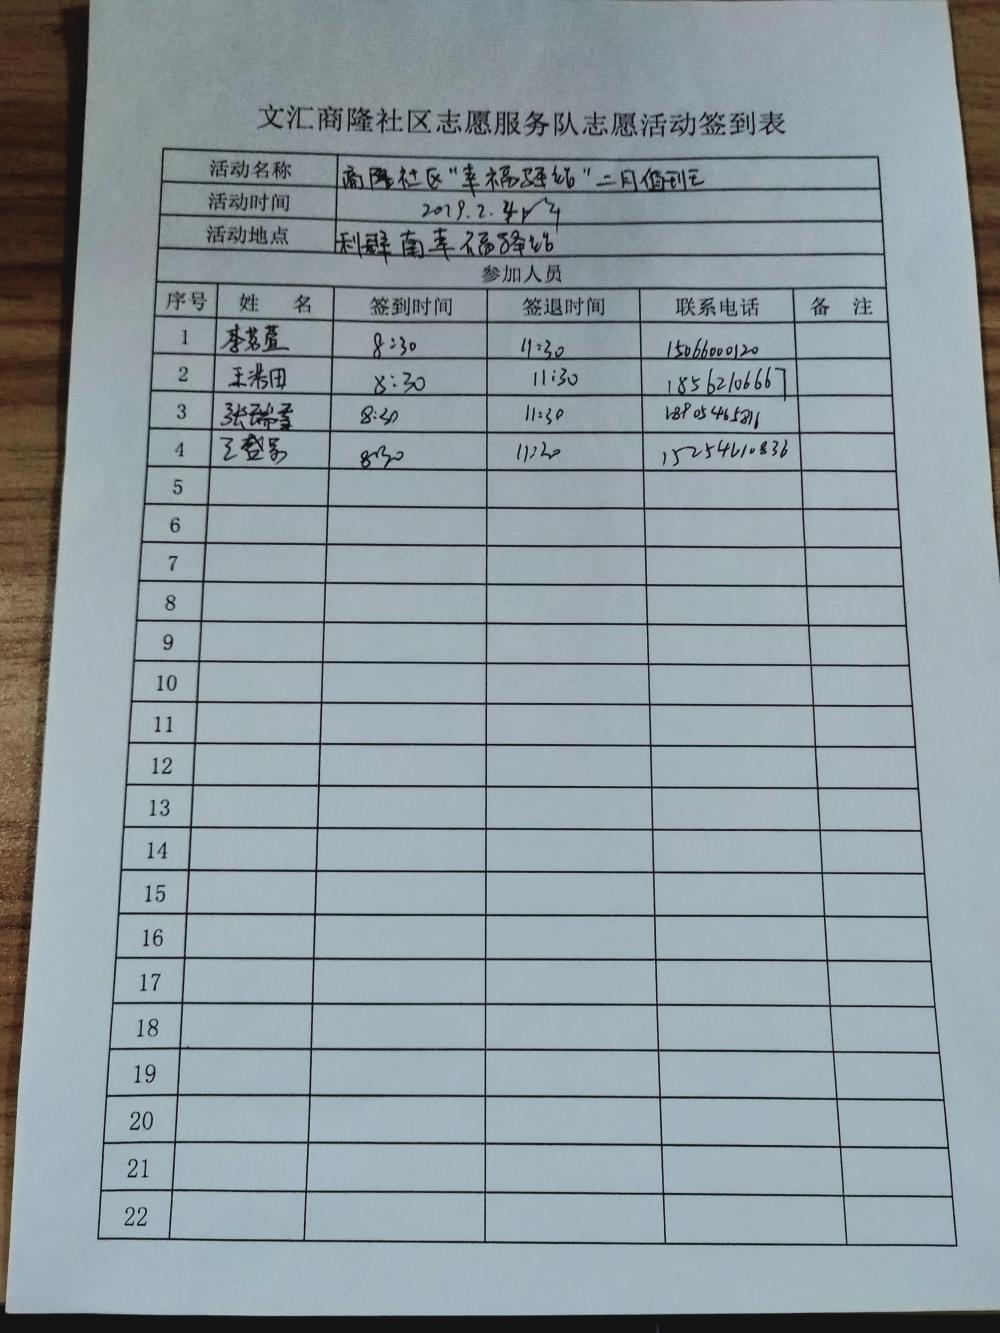 文汇商隆社区志愿服务队志愿活动签到表
活动名称 商隆社区“幸福驿站”二月值班
活动时间 2019.2.
活动地点 利群南幸福驿站
参加人员
序号 姓 名 签到时间 签退时间 联系电话 备 注
1 李茗萱 8:30 11:30 15066000120
2 王浩田 8:30 11:30 18562106667
3 张瑞 8:30 11:30 18805465811
4 王 8:30 11:30 15254610836
5
6
7
8
9
10
11
12
13
14
15
16
17
18
19
20
21
22